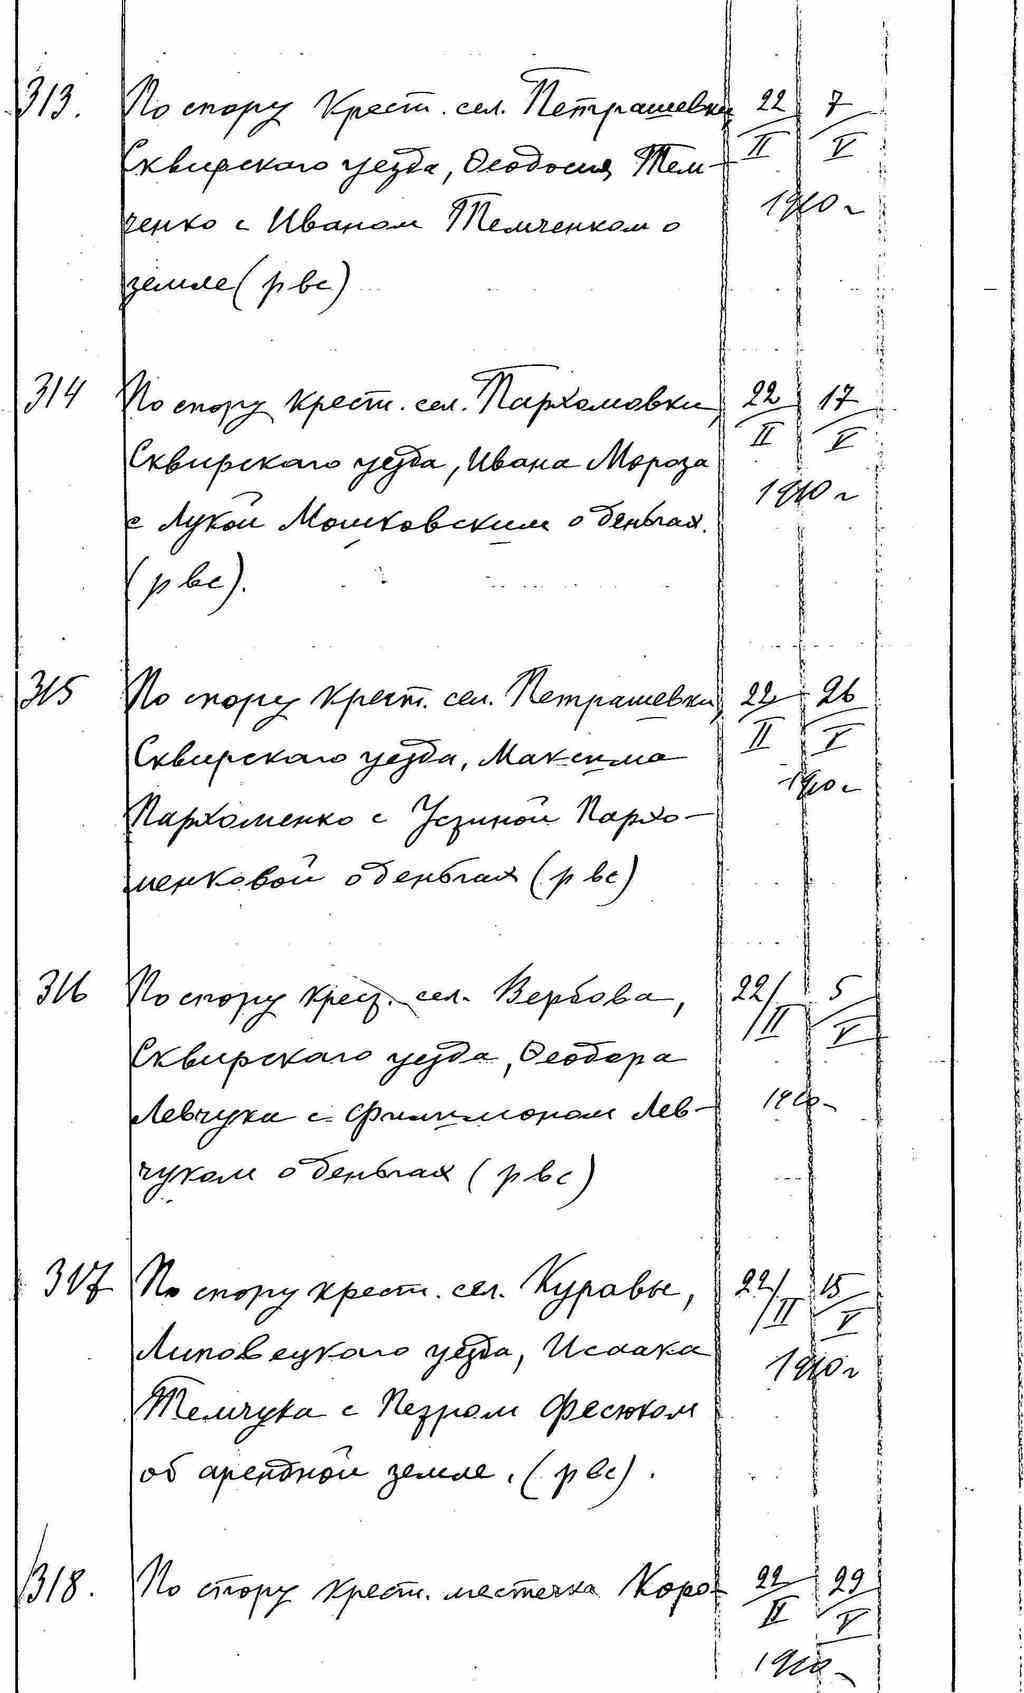 313. По спору Крест. сел. Петрашевки 22 7
Сквирскаго уезда, Феодосия Тем- II V
ченко с Иваном Темченком о 1910 г
земле (рвс)
314 По спору крест. сел. Пархомовки, 22 17
Сквирскаго уезда, Ивана Мороза II V
с Лукой Мошковским о деньгах. 1910 г
(рвс).
315 По спору крест. сел. Петрашевки, 22 26
Сквирскаго уезда, Максима II V
Пархоменко с Устиной Пархо- 1910 г
менковой о деньгах (рвс)
316 По спору крест. сел. Вербова, 22/II 5/V
Сквирскаго уезда, Феодора
Левчука с Филимоном Лев- 1910
чуком о деньгах (рвс)
317 По спору крест. сел. Куравы, 22/II 15/V
Липовецкого уезда, Исаака 1910 г
Темчука с Петром Фесюком
об арендной земле. (рвс).
318. По спору крест. местечка Коро- 22/II 29/V
1910